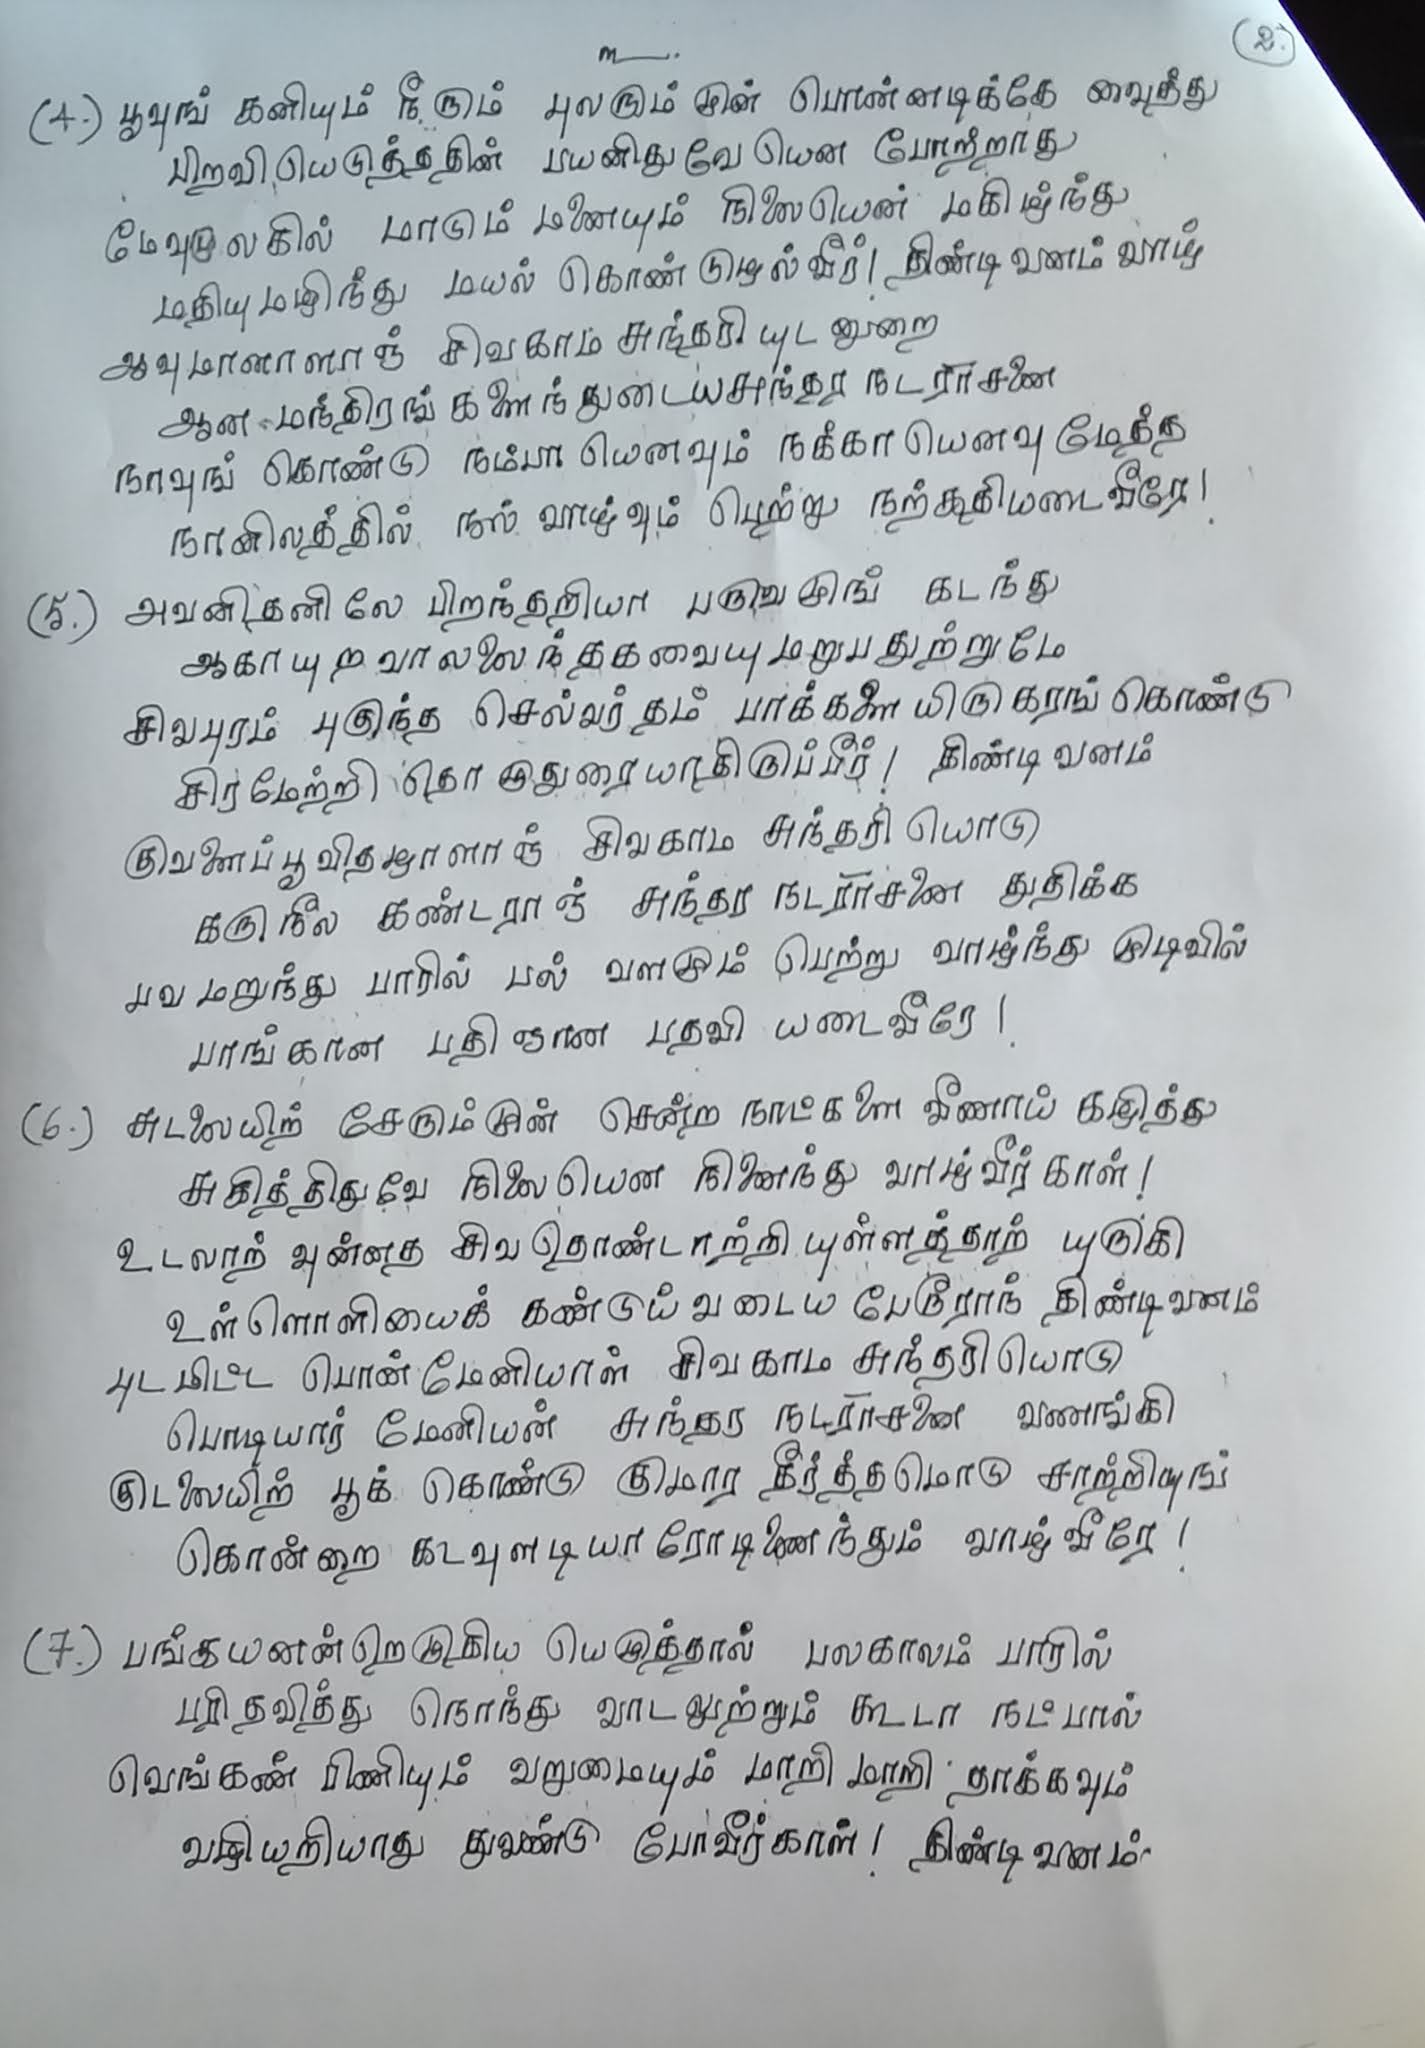 உ
(2.)
(4.) பூவுங் கனியும் நீரும் புலரும் முன் பொன்னடிக்கே வைத்து
பிறவி யெடுத்ததின் பயனிதுவே யென போற்றாது
மேவுமுலகில் மாடும் மனையும் நிலையென் மகிழ்ந்து
மதியுமழிந்து மயல் கொண்டுழல்வீர்! திண்டிவனம் வாழ்
ஆவுமானாளாஞ் சிவகாம சுந்தரியுடனுறை
ஆன மந்திரங்களைந்துடைய சுந்தர நடராசனை
நாவுங் கொண்டு நம்பா யெனவும் நக்கா யெனவு மேத்த
நானிலத்தில் நல் வாழ்வும் பெற்று நற்கதியடைவீரே!
(5.) அவனிதனிலே பிறந்தறியா பருவமுங் கடந்து
ஆகாயுறவாலலைந்தகவையுமறுபதுற்றுமே
சிவபுரம் புகுந்த செல்வர் தம் பாக்களை யிருகரங் கொண்டு
சிரமேற்றி தொழுதுரையாதிருப்பீர்! திண்டிவனம்
குவளைப்பூவிதழாளாஞ் சிவகாம சுந்தரி யொடு
கருநீல கண்டராஞ் சுந்தர நடராசனை துதிக்க
பவமறுந்து பாரில் பல் வளமும் பெற்று வாழ்ந்து முடிவில்
பாங்கான பதிஞான பதவி யடைவீரே!
(6.) சுடலையிற் சேரும்முன் சென்ற நாட்களை வீணாய் கழித்து
சுகித்திதுவே நிலையென நினைந்து வாழ்வீர்காள்!
உடலாற் வுன்னத சிவ தொண்டாற்றி யுள்ளத்தாற் யுருகி
உள்ளொளியைக் கண்டுய்வடைய பேரூராந் திண்டிவனம்
புடமிட்ட பொன்மேனியாள் சிவகாம சுந்தரி யொடு
பொடியார் மேனியன் சுந்தர நடராசனை வணங்கி
குடலையிற் பூக் கொண்டு குமார தீர்த்தமொடு சாற்றியுங்
கொன்றை கடவுளடியாரோடிணைந்தும் வாழ்வீரே!
(7.) பங்கயனன்றெழுதிய யெழுத்தால் பலகாலம் பாரில்
பரிதவித்து நொந்து வாடலுற்றும் கூடா நட்பால்
வெங்கண் பிணியும் வறுமையும் மாறி மாறி தாக்கவும்
வழியறியாது துவண்டு போவீர்காள்! திண்டிவனம்